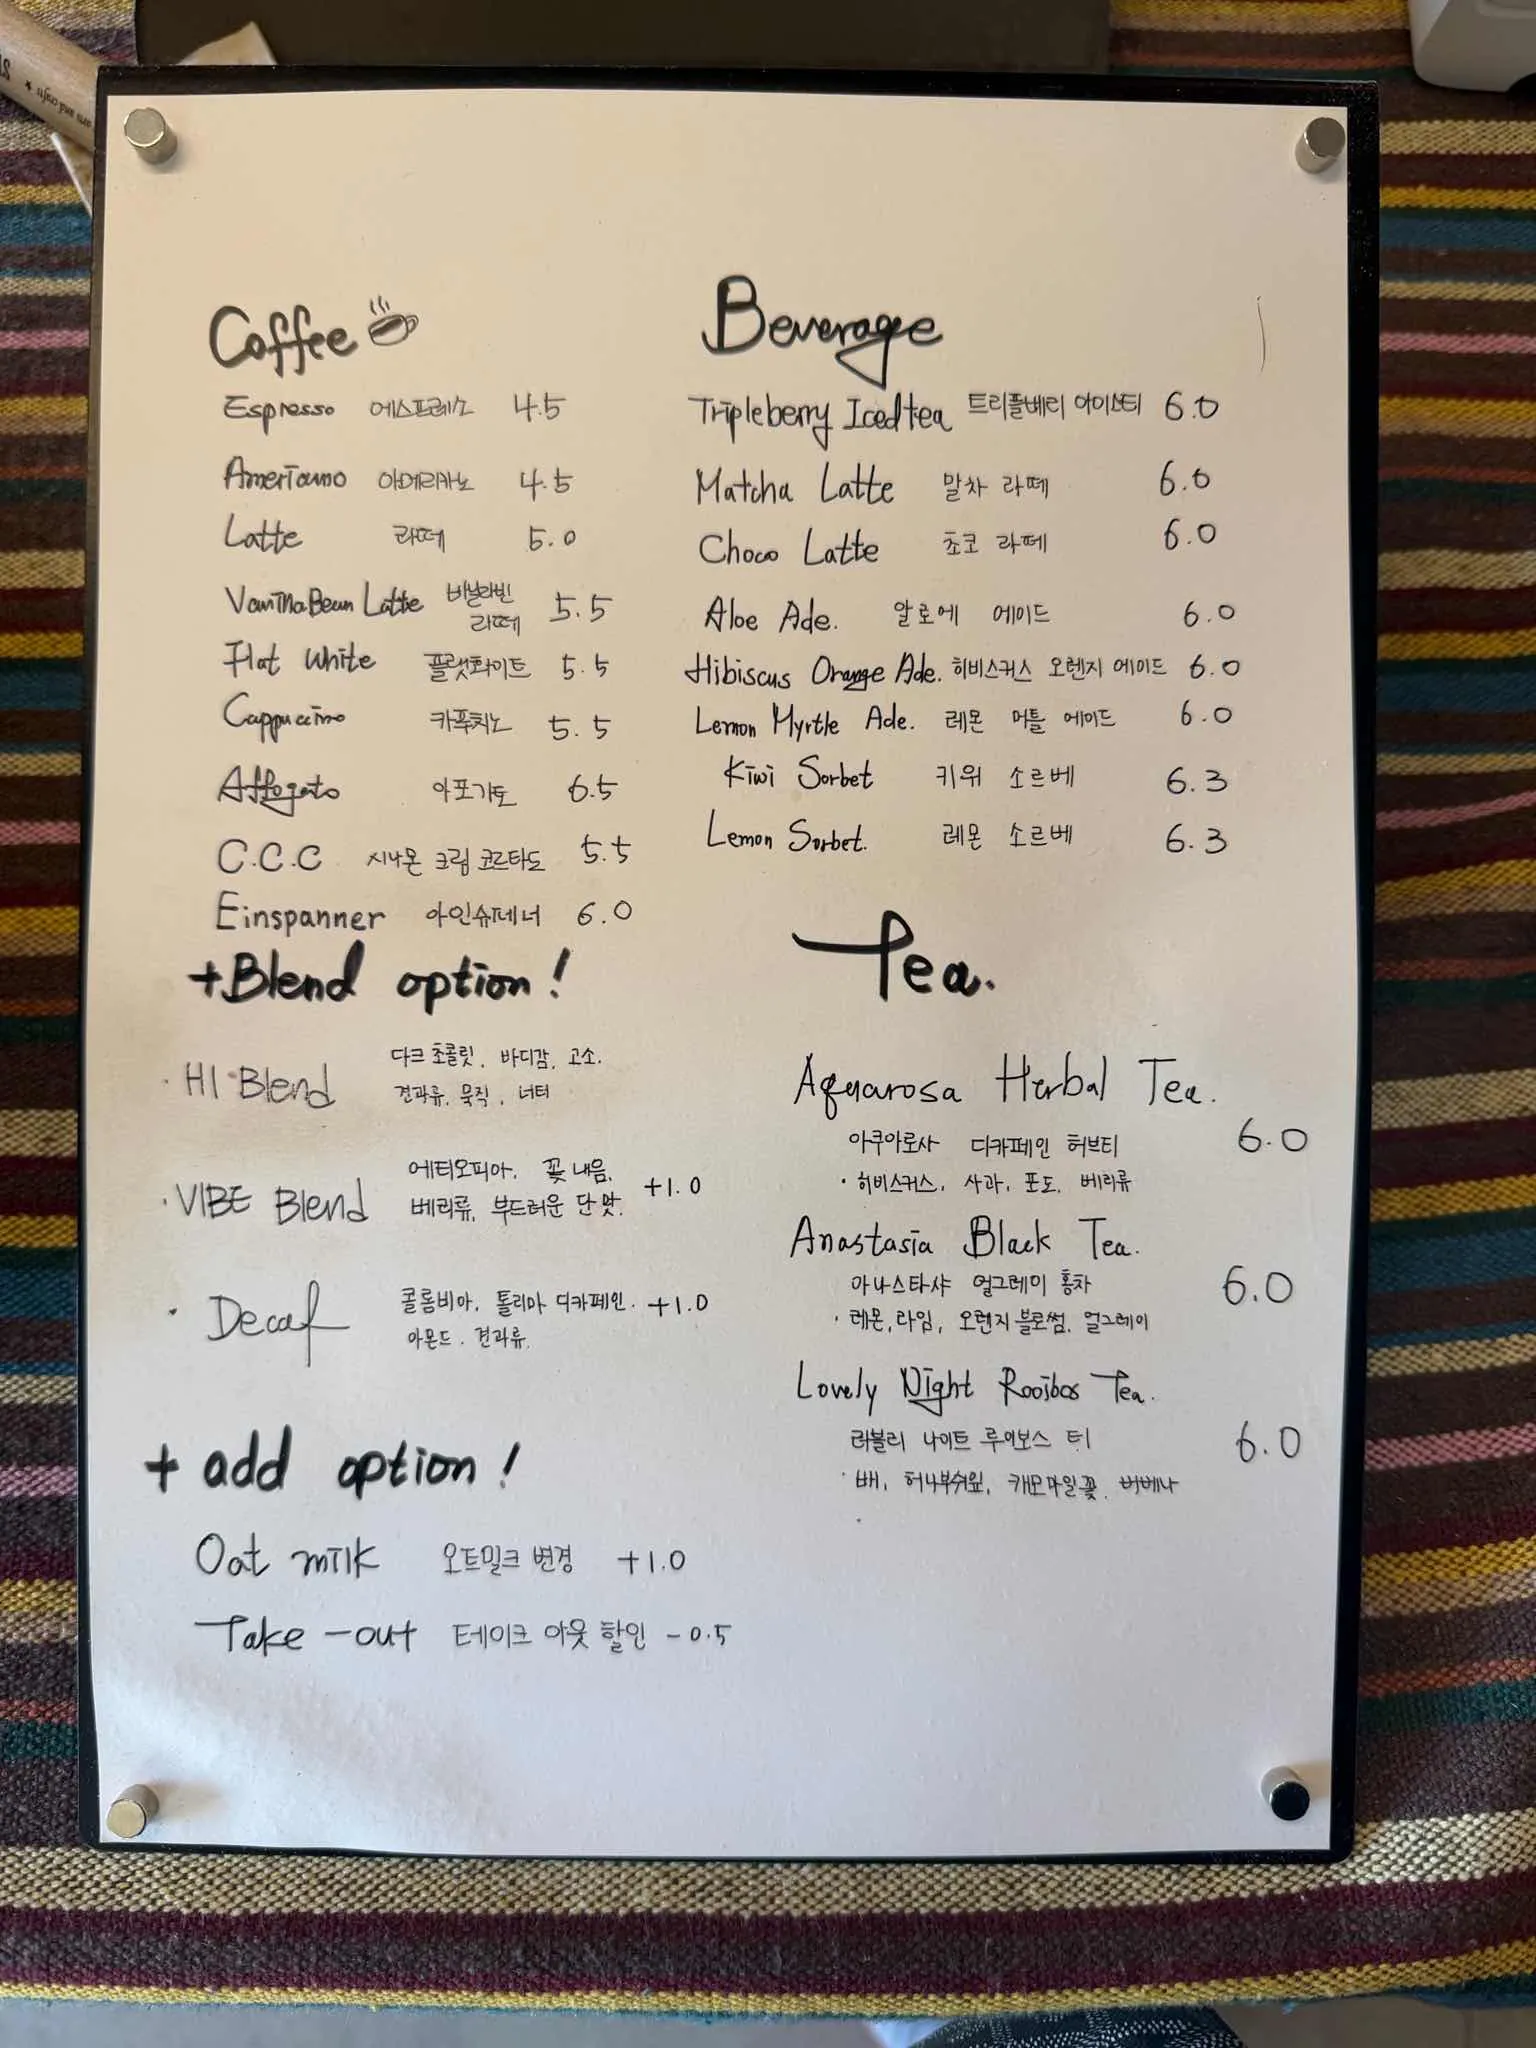 Coffee
Espresso 에스프레소 4.5
Americano 아메리카노 4.5
Latte 라떼 5.0
Vanilla Bean Latte 바닐라빈 라떼 5.5
Flat White 플랫화이트 5.5
Cappuccino 카푸치노 5.5
Affogato 아포가토 6.5
C.C.C 시나몬 크림 코르타도 5.5
Einspanner 아인슈페너 6.0
+Blend option!
· HI Blend
다크 초콜릿. 바디감. 고소.
견과류. 묵직. 너티
· VIBE Blend
에티오피아. 꽃 내음.
베리류. 부드러운 단맛. +1.0
· Decaf
콜롬비아. 톨리마 디카페인. +1.0
아몬드. 견과류.
+ add option!
Oat milk 오트밀크 변경 +1.0
Take-out 테이크 아웃 할인 -0.5
Beverage
Tripleberry Iced tea 트리플베리 아이스티 6.0
Matcha Latte 말차 라떼 6.0
Choco Latte 초코 라떼 6.0
Aloe Ade. 알로에 에이드 6.0
Hibiscus Orange Ade. 히비스커스 오렌지 에이드 6.0
Lemon Myrtle Ade. 레몬 머틀 에이드 6.0
Kiwi Sorbet 키위 소르베 6.3
Lemon Sorbet. 레몬 소르베 6.3
Tea.
Aquarosa Herbal Tea.
아쿠아로사 디카페인 허브티 6.0
· 히비스커스, 사과, 포도, 베리류
Anastasia Black Tea.
아나스타샤 얼그레이 홍차 6.0
· 레몬, 라임, 오렌지 블로썸, 얼그레이
Lovely Night Rooibos Tea.
러블리 나이트 루이보스 티 6.0
· 배, 허니부쉬잎, 캐모마일꽃, 버베나